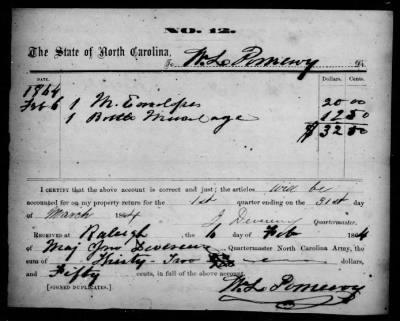 NO. 12.
The State of North Carolina,
To W. L. Pomeroy Dr.
DATE. Dollars. Cents.
1864
Feb 6 1 M. Envelopes 20 00
1 Bottle Mucilage 12 50
$ 32 50
I CERTIFY that the above account is correct and just; the articles will be
accounted for on my property return for the 1st quarter ending on the 31st day
of March 1864 J. Devereux Quartermaster.
RECEIVED at Raleigh the 6 day of Feb 1864
of Maj Jno Devereux Quartermaster North Carolina Army, the
sum of Thirty-Two dollars,
and Fifty cents, in full of the above account.
[SIGNED DUPLICATES.] W. L. Pomeroy